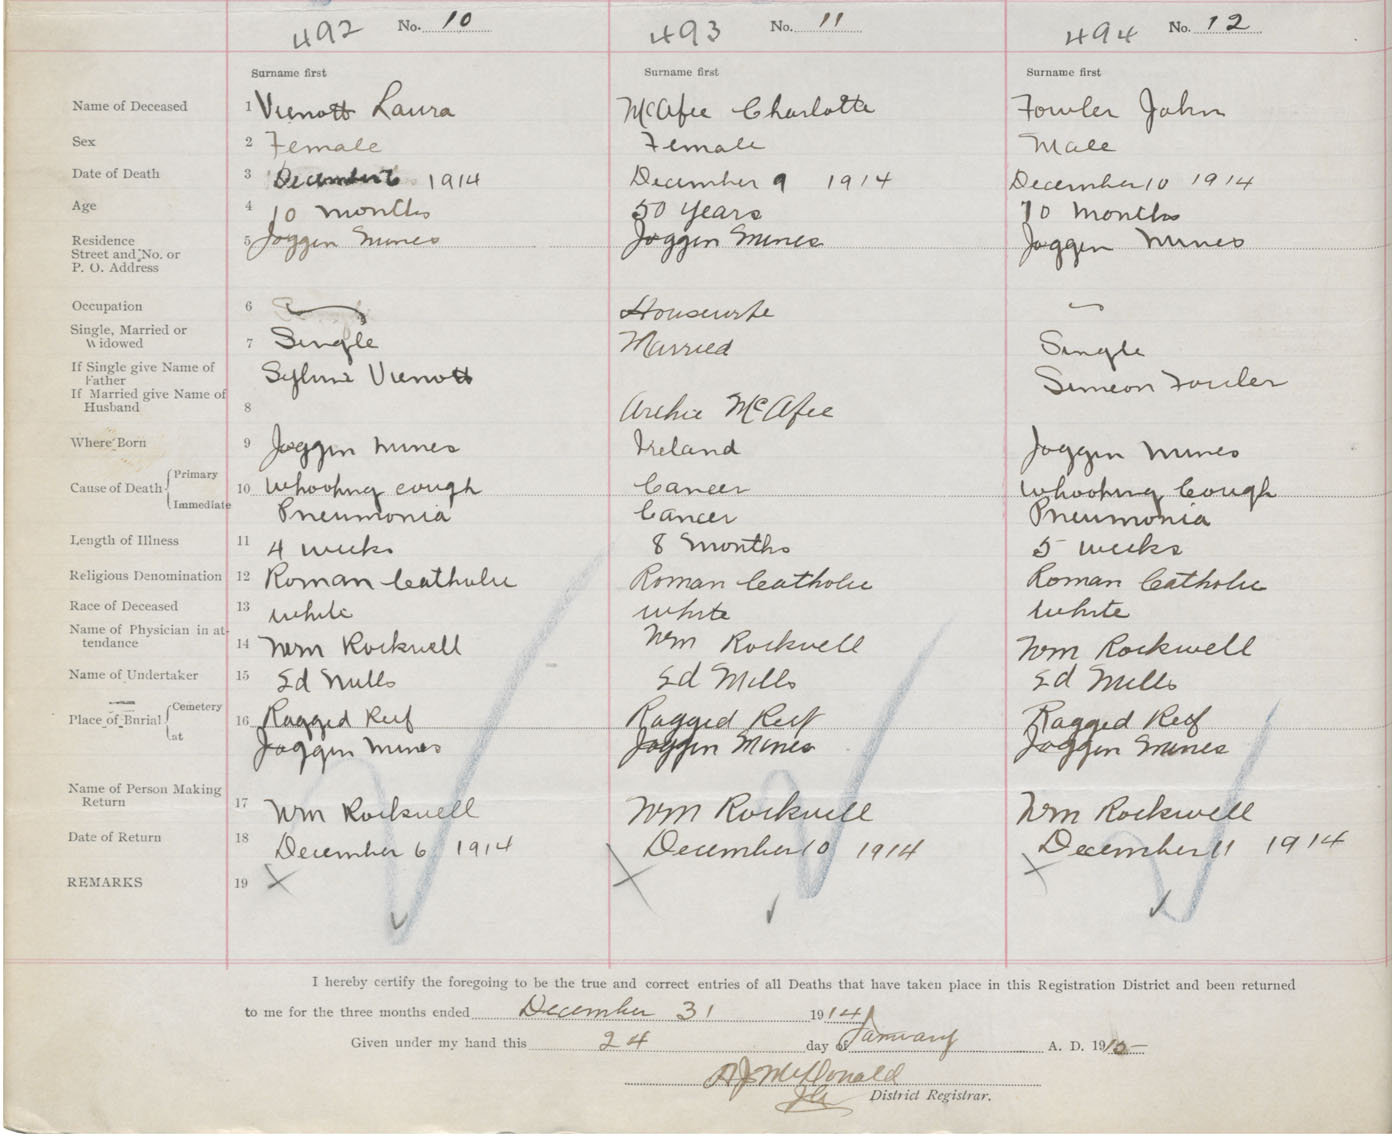 492 No. 10 493 No. 11 494 No. 12
Surname first Surname first Surname first
Name of Deceased 1 Vienott Laura McAfee Charlotte Fowler John
Sex 2 Female Female Male
Date of Death 3 December 6 1914 December 9 1914 December 10 1914
Age 4 10 months 50 years 10 months
Residence 5 Joggin Mines Joggin Mines Joggin Mines
Street and No. or
P. O. Address
Occupation 6 Housewife
Single, Married or
Widowed 7 Single Married Single
If Single give Name of
Father Vienott Simeon Fowler
If Married give Name of
Husband 8 Archie McAfee
Where Born 9 Joggin Mines Ireland Joggin Mines
Primary
Cause of Death 10 Whooping cough Cancer Whooping Cough
Immediate Pneumonia Cancer Pneumonia
Length of Illness 11 4 weeks 8 Months 5 weeks
Religious Denomination 12 Roman Catholic Roman Catholic Roman Catholic
Race of Deceased 13 White White White
Name of Physician in at-
tendance 14 Wm Rockwell Wm Rockwell Wm Rockwell
Name of Undertaker 15 Ed Mills Ed Mills Ed Mills
Cemetery
Place of Burial 16 Ragged Reef Ragged Reef Ragged Reef
at Joggin Mines Joggin Mines Joggin Mines
Name of Person Making
Return 17 Wm Rockwell Wm Rockwell Wm Rockwell
Date of Return 18 December 6 1914 December 10 1914 December 11 1914
REMARKS 19
I hereby certify the foregoing to be the true and correct entries of all Deaths that have taken place in this Registration District and been returned
to me for the three months ended December 31 1914
Given under my hand this 24 day of January A. D. 1915
A J McDonald
District Registrar.